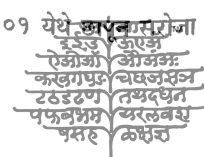 ०१ येथे छापून
इ ई उ ऊ ए ऐ
ऐ ओ औ औ अं अः
क ख ग घ ङ च छ ज झ ञ
ट ठ ड ढ ण त थ द ध न
प फ ब भ म य र ल व श
ष स ह ळ क्ष ज्ञ